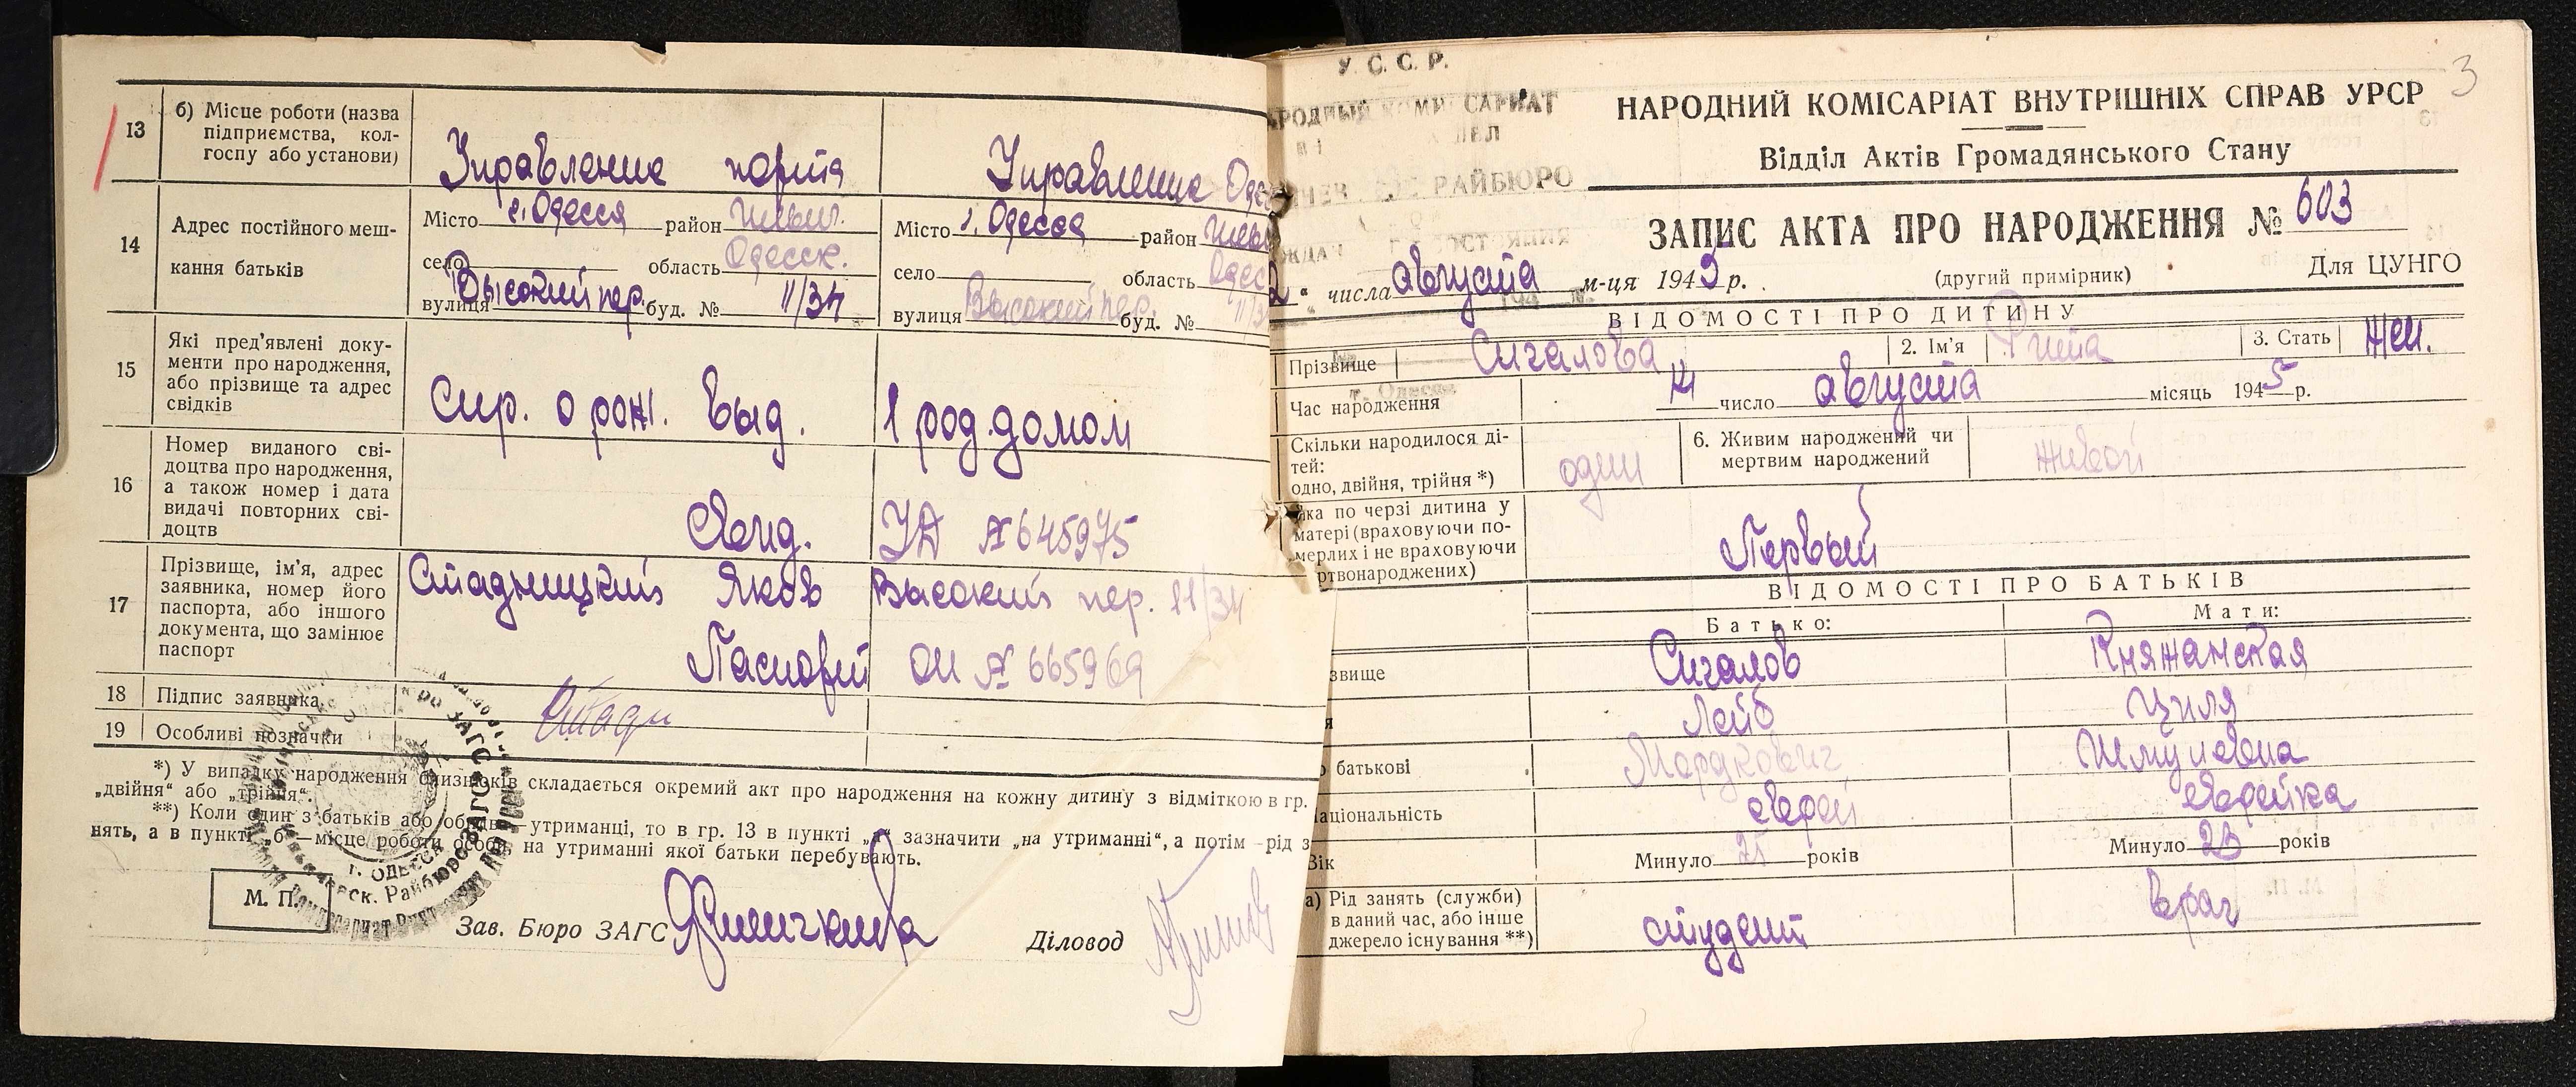 13
б) Місце роботи (назва
підприємства, кол-
госпу або установи)
Управление порта
Управление
14
Адрес постійного меш-
кання батьків
Місто г. Одесса район Ильич.
село область Одесск.
вулиця Высокий пер. буд. № 11/34
Місто г. Одесса район
село область
вулиця Высокий пер. буд. №
15
Які пред'явлені доку-
менти про народження,
або прізвище та адрес
свідків
Спр. о рожд. выд. 1 род. домом
16
Номер виданого сві-
доцтва про народження,
а також номер і дата
видачі повторних сві-
доцтв
№ 645975
17
Прізвище, ім'я, адрес
заявника, номер його
паспорта, або іншого
документа, що замінює
паспорт
Стадницкий Яков Высокий пер. 11/34
Паспорт № 665969
18 Підпис заявника
19 Особливі позначки
*) У випадку народження близнюків складається окремий акт про народження на кожну дитину з відміткою в гр.
„двійня“ або „трійня“.
**) Коли один з батьків або обидва—утриманці, то в гр. 13 в пункті „а“ зазначити „на утриманні“, а потім рід з
нять, а в пункті „б“—місце роботи особи, на утриманні якої батьки перебувають.
г. ОДЕССА
М. П.
Зав. Бюро ЗАГС
Діловод
3
У. С. С. Р.
РАЙБЮРО
НАРОДНИЙ КОМІСАРІАТ ВНУТРІШНІХ СПРАВ УРСР
Відділ Актів Громадянського Стану
ЗАПИС АКТА ПРО НАРОДЖЕННЯ № 603
числа августа м-ця 1945 р.
(другий примірник)
Для ЦУНГО
ВІДОМОСТІ ПРО ДИТИНУ
Прізвище Сигалова 2. Ім'я Рита 3. Стать Жен.
Час народження 14 число августа місяць 1945 р.
Скільки народилося ді-
тей:
одно, двійня, трійня *)
один
6. Живим народжений чи
мертвим народжений
живой
яка по черзі дитина у
матері (враховуючи по-
мерлих і не враховуючи
ртвонароджених)
Первый
ВІДОМОСТІ ПРО БАТЬКІВ
Батько: Мати:
звище Сигалов Княжанская
я Лейб Циля
батькові Мордкович Шмулевна
аціональність еврей еврейка
Вік Минуло років Минуло 23 років
а) Рід занять (служби)
в даний час, або інше
джерело існування **)
студент
врач